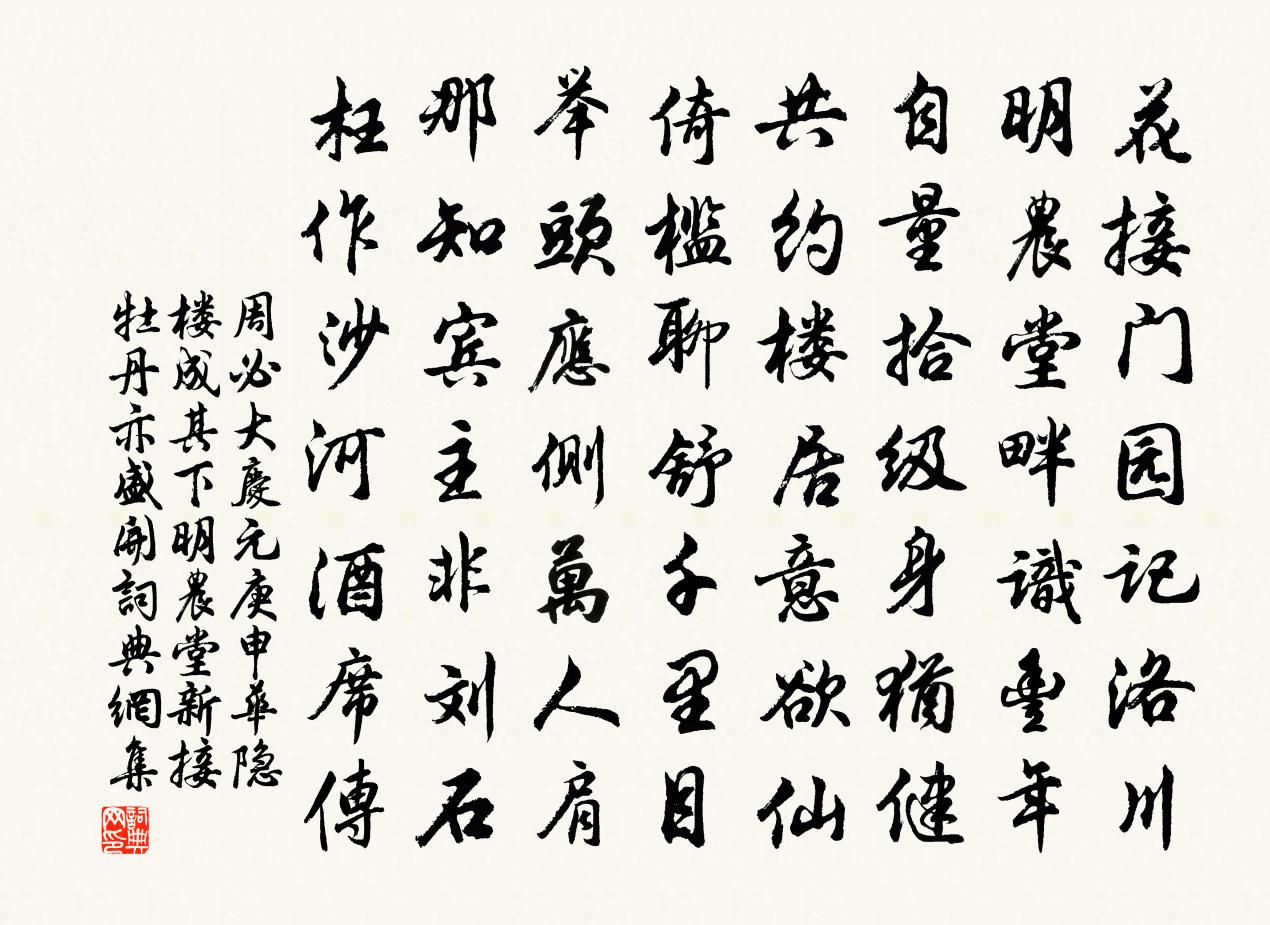 花接门园记洛川
明農堂畔識豊年
自量拾级身猶健
共约楼居意欲仙
倚槛聊舒千里目
举頭應側萬人肩
那知宾主非刘石
枉作沙河酒席傳
周必大慶元庚申華隐
楼成其下明農堂新接
牡丹亦盛開詞典網集
詞典
网印